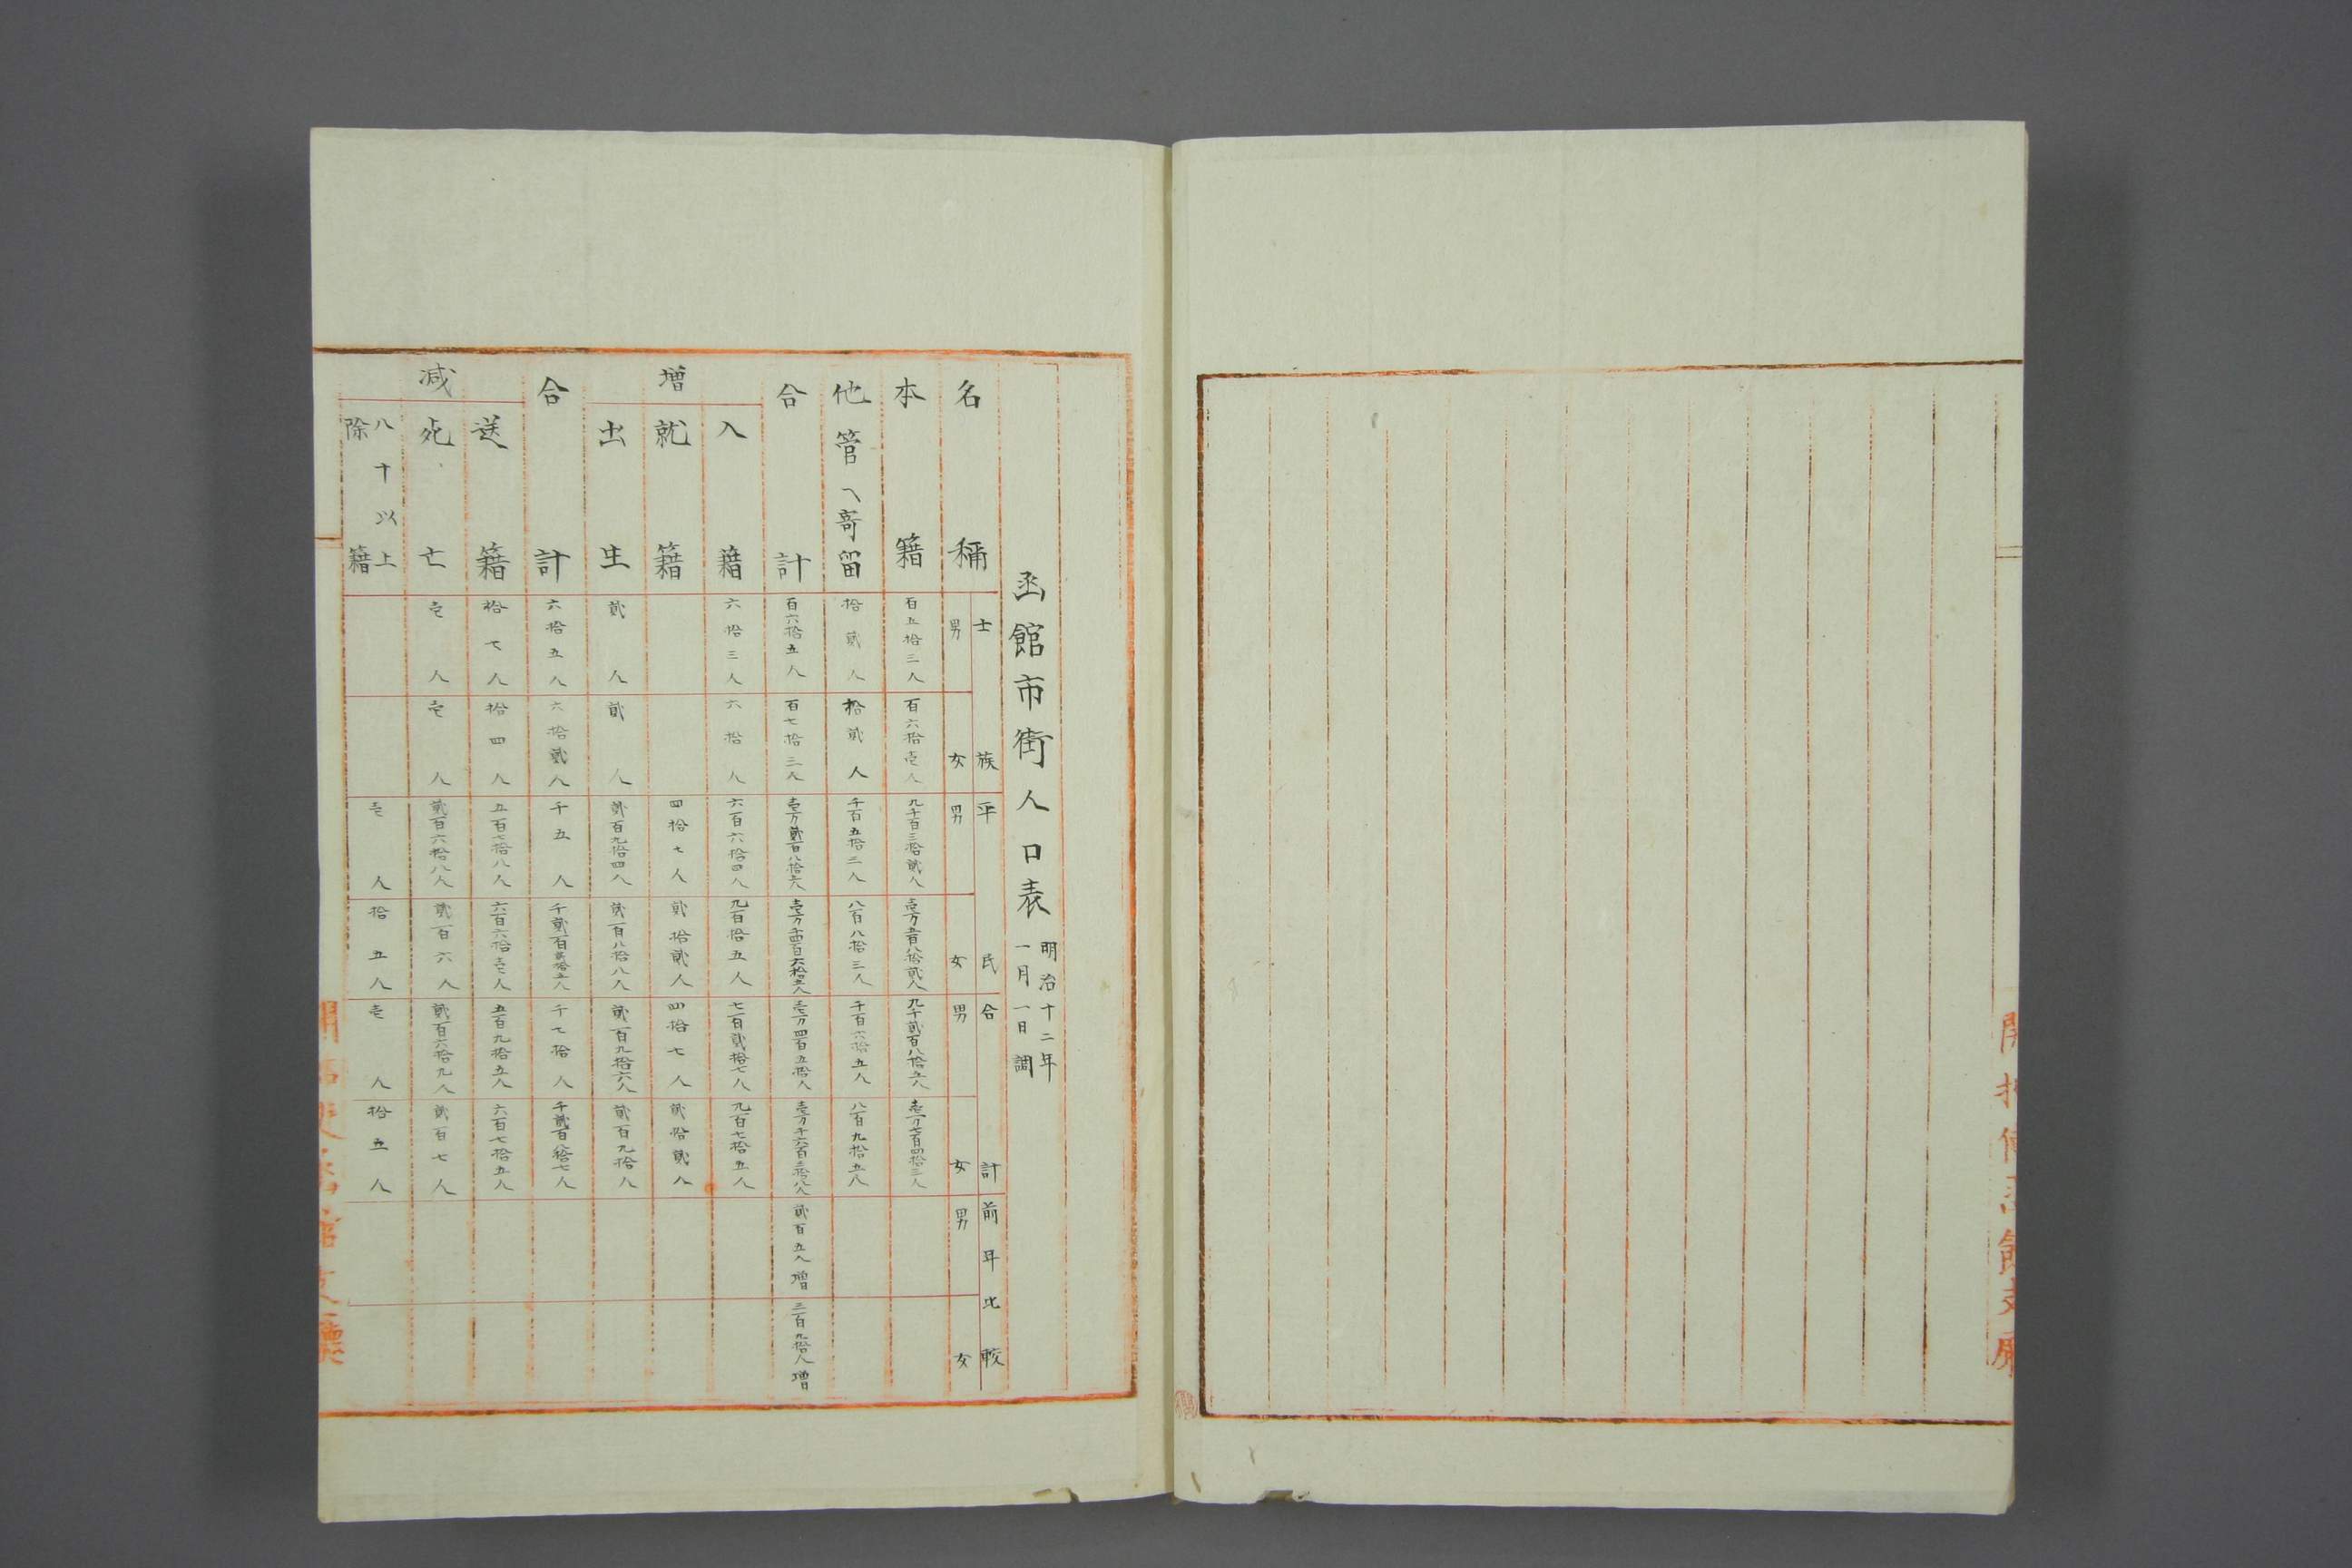 開拓使函館支廳
函館市街人口表 明治十二年
一月一日調
名稱 士族 平民 合計 前年比較
男 女 男 女 男 女 男 女
本籍 百五拾三人 百六拾壱人 九千百三拾貳人 壱万五百八拾貳人 九千貳百八拾五人 壱万七百四拾三人
他管ヘ寄留 拾貳人 拾貳人 千百五拾三人 八百八拾三人 千百六拾五人 八百九拾五人
合計 百六拾五人 百七拾三人 壱万貳百八拾五人 壱万千四百六拾五人 壱万四百五拾人 壱万千六百三拾八人 貳百五人増 三百九拾人増
増
入籍 六拾三人 六拾人 六百六拾四人 九百拾五人 七百貳拾七人 九百七拾五人
就籍 四拾七人 貳拾貳人 四拾七人 貳拾貳人
出生 貳人 貳人 貳百九拾四人 貳百八拾八人 貳百九拾六人 貳百九拾人
合計 六拾五人 六拾貳人 千五人 千貳百貳拾五人 千七拾人 千貳百八拾七人
減
送籍 拾七人 拾四人 五百七拾八人 六百六拾壱人 五百九拾五人 六百七拾五人
死亡 壱人 壱人 貳百六拾八人 貳百六人 貳百六拾九人 貳百七人
八十以上
除籍 壱人 拾五人 壱人 拾五人